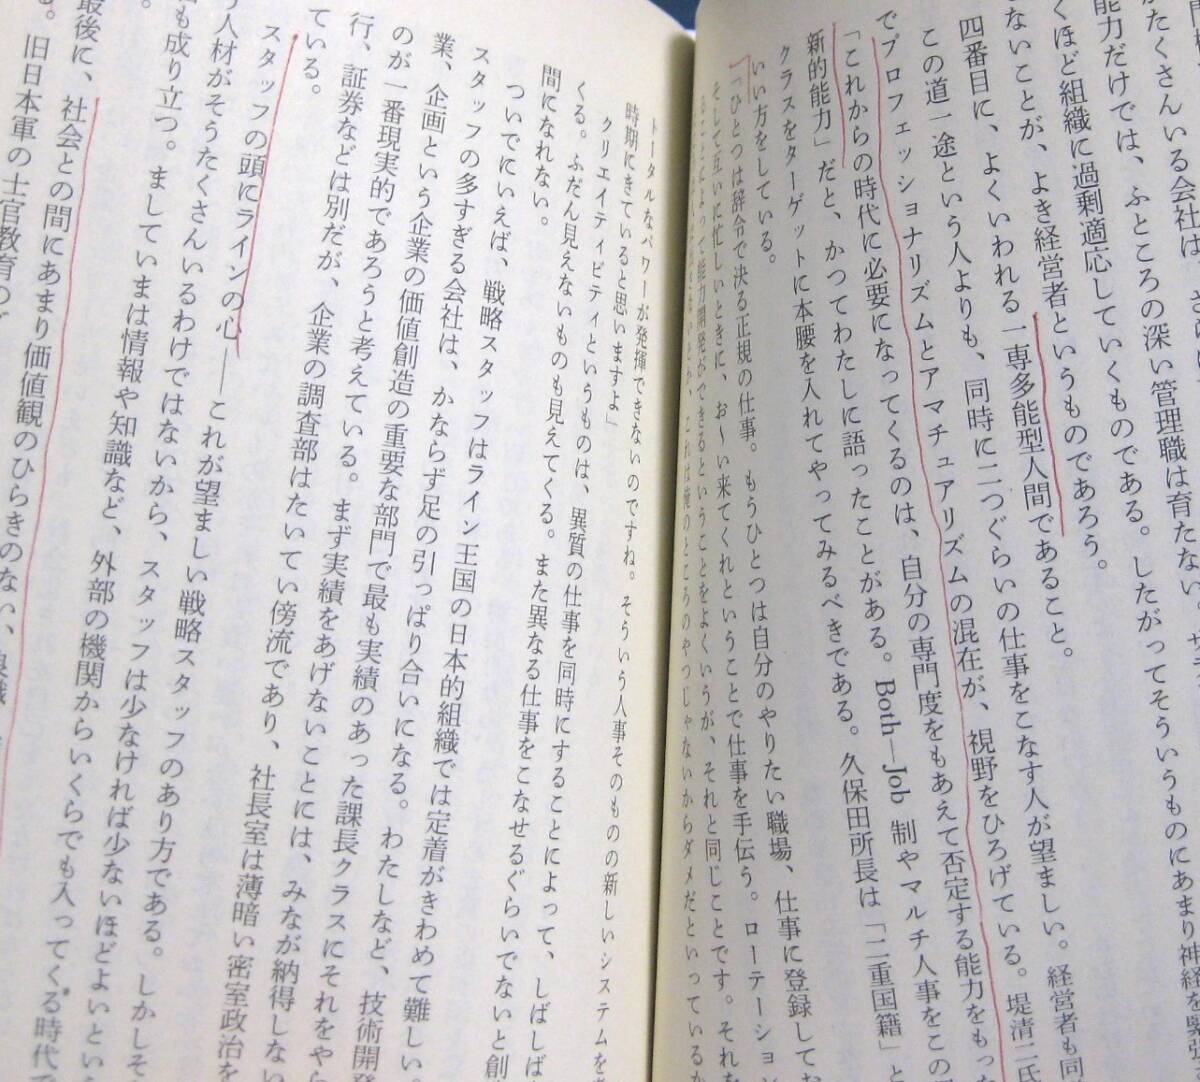 がたくさんいる会社は、
能力だけでは、ふところの深い管理職は育たない。
くほど組織に過剰適応していくものである。したがってそういうものにあまり神経を
ないことが、よき経営者というものであろう。
四番目に、よくいわれる一専多能型人間であること。
この道一途という人よりも、同時に二つぐらいの仕事をこなす人が望ましい。経営者も同
でプロフェッショナリズムとアマチュアリズムの混在が、視野をひろげている。堤清二氏
「これからの時代に必要になってくるのは、自分の専門度をもあえて否定する能力をもっ
新的能力」だと、かつてわたしに語ったことがある。Both―Job 制やマルチ人事をこの
クラスをターゲットに本腰を入れてやってみるべきである。久保田所長は「二重国籍」と
いい方をしている。
「ひとつは辞令で決る正規の仕事。もうひとつは自分のやりたい職場、仕事に登録してお
そして互いに忙しいときに、お〜い来てくれということで仕事を手伝う。ローテーション
ることによって能力開発ができるということをよくいうが、それと同じことです。それを
これは俺のところのやつじゃないからダメだといっているか
トータルなパワーが発揮できないのですね。そういう人事そのものの新しいシステムを
時期にきていると思いますよ」
クリエイティビティというものは、異質の仕事を同時にすることによって、しばしば
くる。ふだん見えないものも見えてくる。また異なる仕事をこなせるぐらいでないと創
間になれない。
ついでにいえば、戦略スタッフはライン王国の日本的組織では定着がきわめて難しい。
スタッフの多すぎる会社は、かならず足の引っぱり合いになる。わたしなど、技術開発
業、企画という企業の価値創造の重要な部門で最も実績のあった課長クラスにそれをやら
のが一番現実的であろうと考えている。まず実績をあげないことには、みなが納得しない
行、証券などは別だが、企業の調査部はたいてい傍流であり、社長室は薄暗い密室政治を
ている。
スタッフの頭にラインの心――これが望ましい戦略スタッフのあり方である。しかしそ
う人材がそうたくさんいるわけではないから、スタッフは少なければ少ないほどよいとい
も成り立つ。ましていまは情報や知識など、外部の機関からいくらでも入ってくる時代で
最後に、社会との間にあまり価値観のひらきのない、
る。旧日本軍の士官教育の